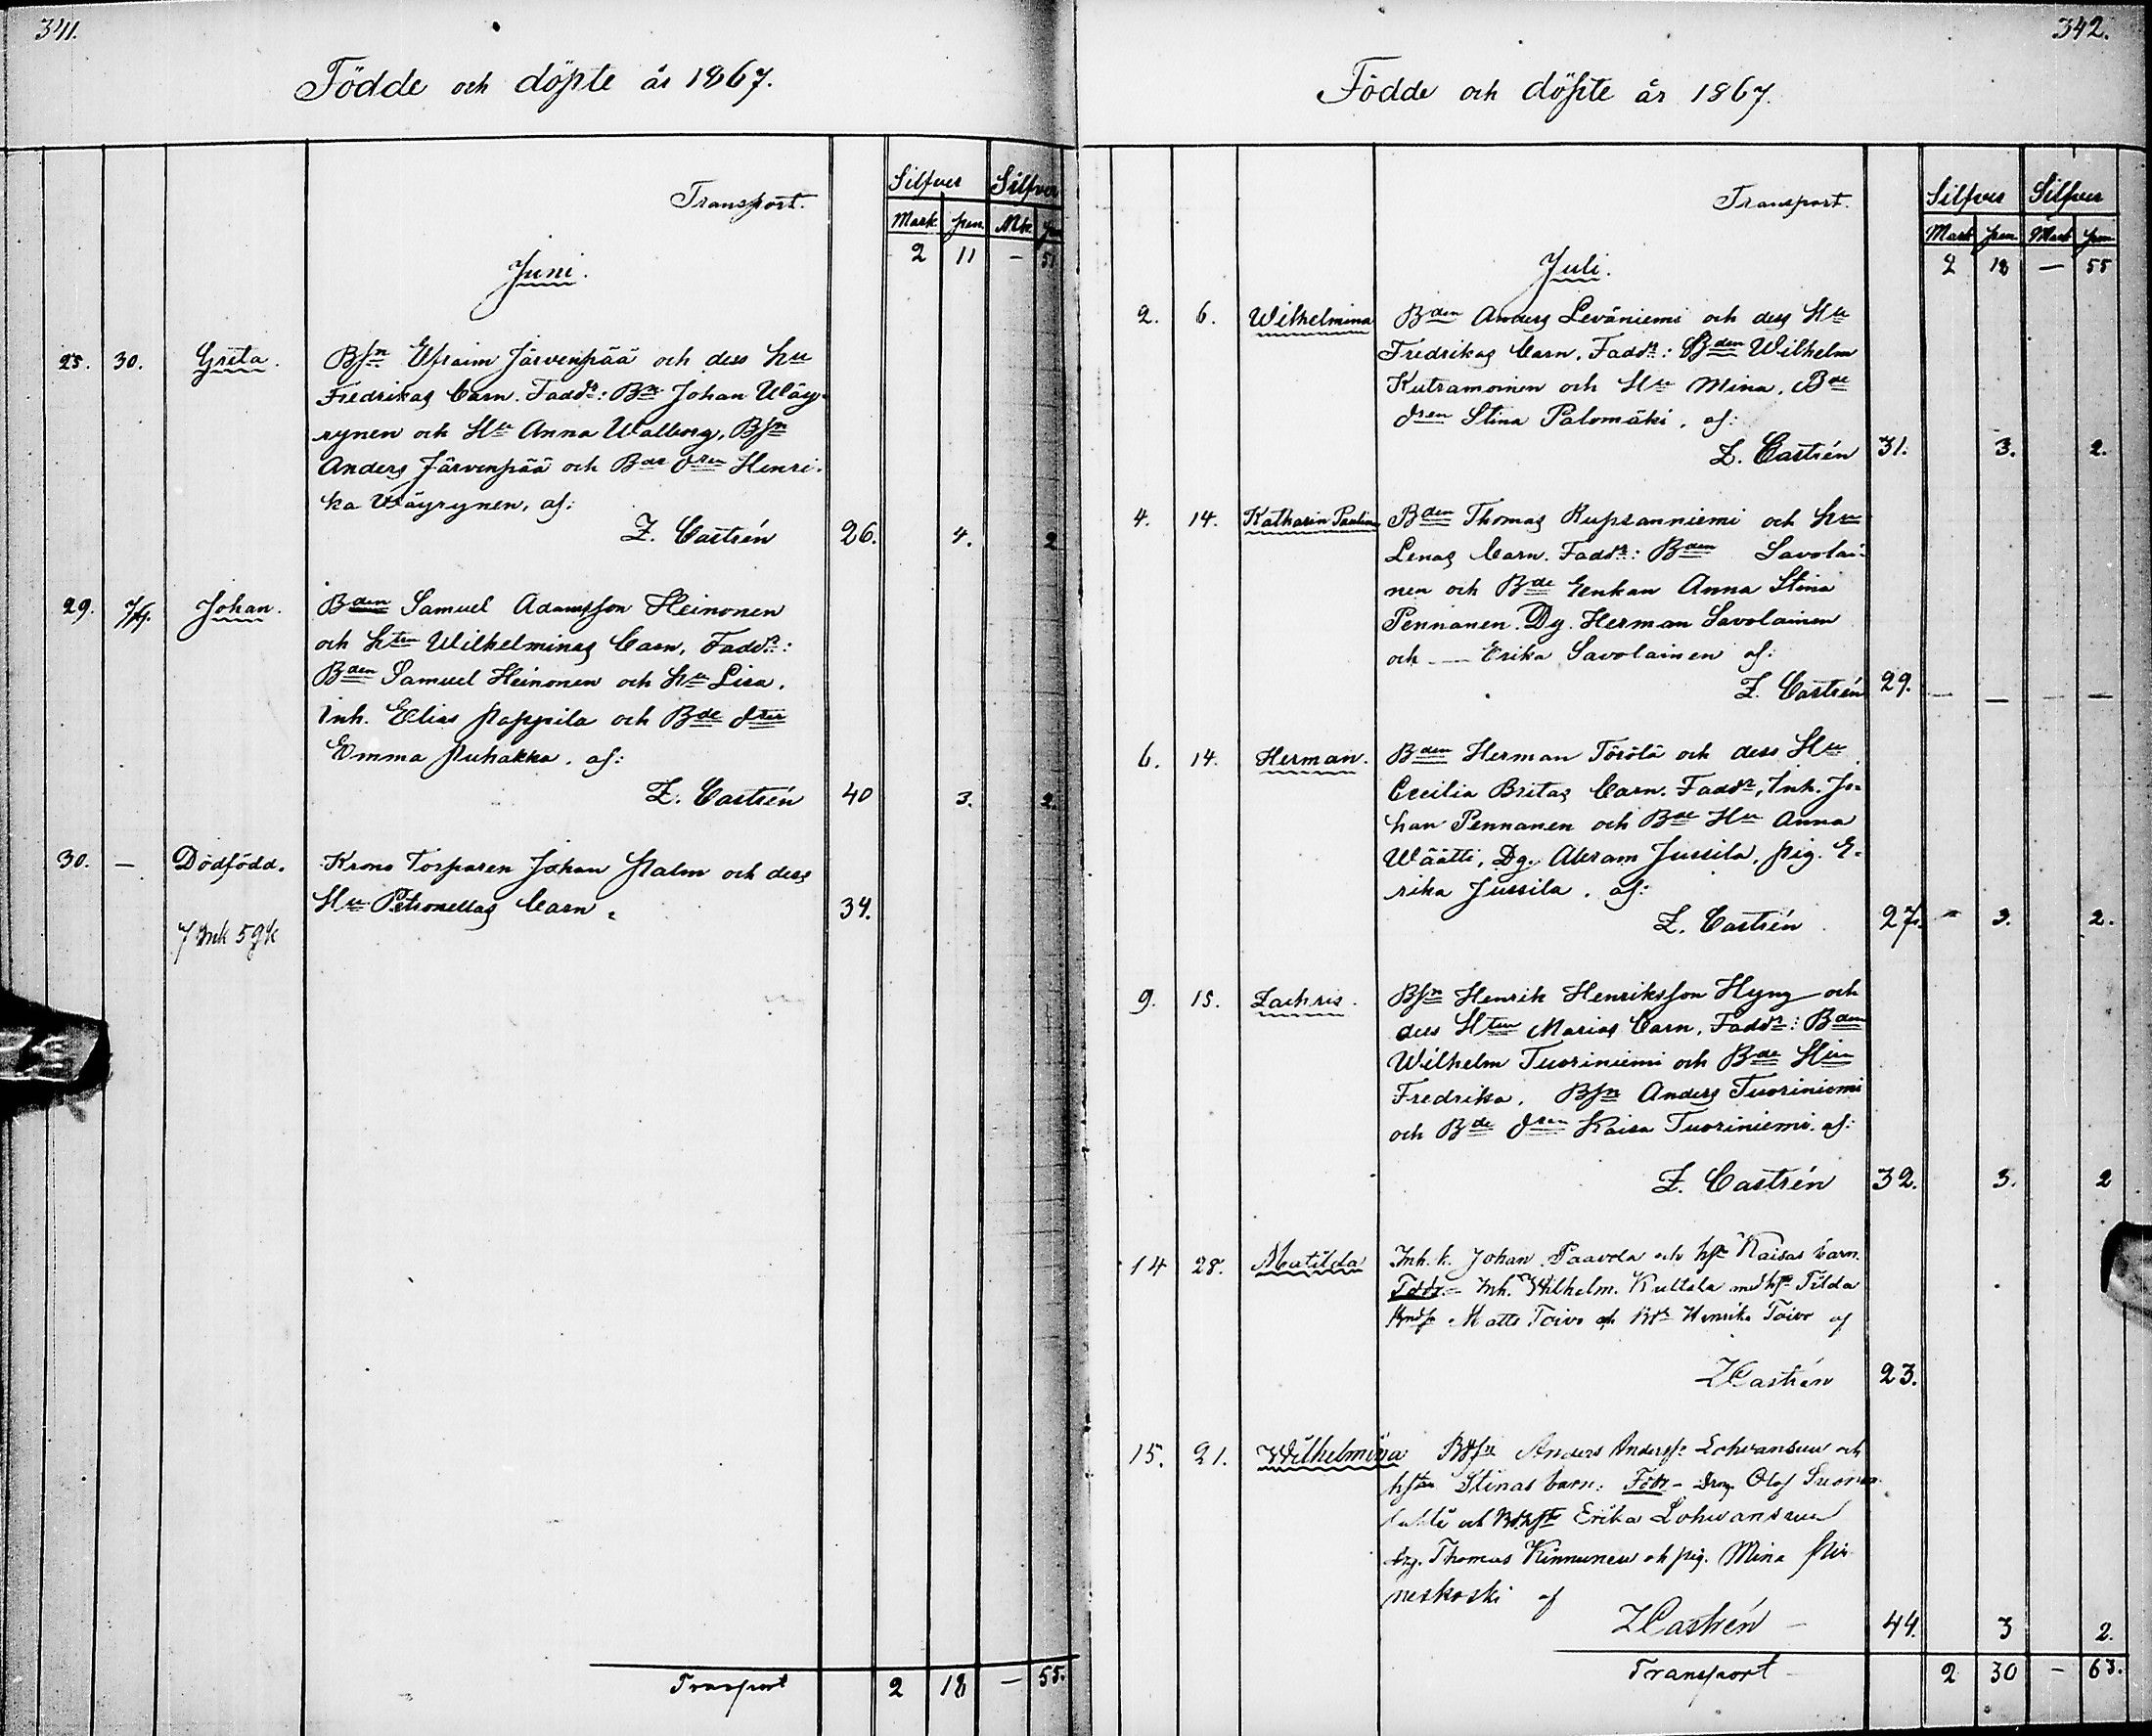 341.
Födde och döpte år 1867.
Transport.
Silfver Silfver
Mark. pen. Mk. pen
2 11 — 51
Juni.
25. 30. Greta. Bsn Efraim Järvenpää och dess Hu
Fredrikas barn. Faddr: Bn Johan Wäy-
rynen och Hu Anna Walborg, Bsn
Anders Järvenpää och Bde dren Henri-
ka Wäyrynen, af:
Z. Castrén 26. 4. 2
29. 7/7. Johan. Bden Samuel Adamsson Heinonen
och Htru Wilhelminas barn, Faddr:
Bden Samuel Heinonen och Hu Lisa.
Inh. Elias Pappila och Bde dter
Emma Puhakka. af:
Z. Castrén 40 3. 2.
30. — Dödfödd. Krono Torparen Johan Palm och dess
Hu Petronellas barn. 34.
7 Mk 59 K
Transport 2 18 — 55.
342.
Födde och döpte år 1867.
Transport.
Silfver Silfver
Mark pen Mark pen
2 18 — 55
Juli.
2. 6. Wilhelmina Bden Anders Leväniemi och dess Hu
Fredrikas barn. Faddr: Bden Wilhelm
Kutramoinen och Hu Mina. Bde
dren Stina Palomäki. af:
Z. Castrén 31. 3. 2.
4. 14. Katharin Paulina Bden Thomas Rupsanniemi och Hu
Lenas barn. Faddr: Bden Savolai-
nen och Bde Enkan Anna Stina
Pennanen. Dg. Herman Savolainen
och — Erika Savolainen af:
Z. Castrén 29. — — — —
6. 14. Herman. Bden Herman Törölä och dess Hu
Cecilia Britas barn. Faddr, Inh. Jo-
han Pennanen och Bde Hu Anna
Wäätti, Dg. Abram Jussila, pig. E-
rika Jussila. af:
Z. Castrén 27. - 3. 2.
9. 15. Zachris. Bsn Henrik Henriksson Hyng och
dess Htru Marias barn, Faddr: Bden
Wilhelm Tuoriniemi och Bde Hu
Fredrika. Bsn Anders Tuoriniemi
och Bde dren Kaisa Tuoriniemi. af:
Z. Castrén 32. 3. 2
14 28. Matilda Inh. k. Johan Paavola och Kaisas barn.
Inh. Wilhelm Kullala Tilda
Matts Toivo och Henrika Toivo af
ZCastrén 23.
15. 21. Wilhelmina Anders Anderss. Lohvansuu och
Stinas barn: Olof
och Erika Lohvansuu
drg. Thomas Kinnunen och pig. Mina Pir-
neskoski af
ZCastrén 44. 3 2.
Transport 2 30 — 63.